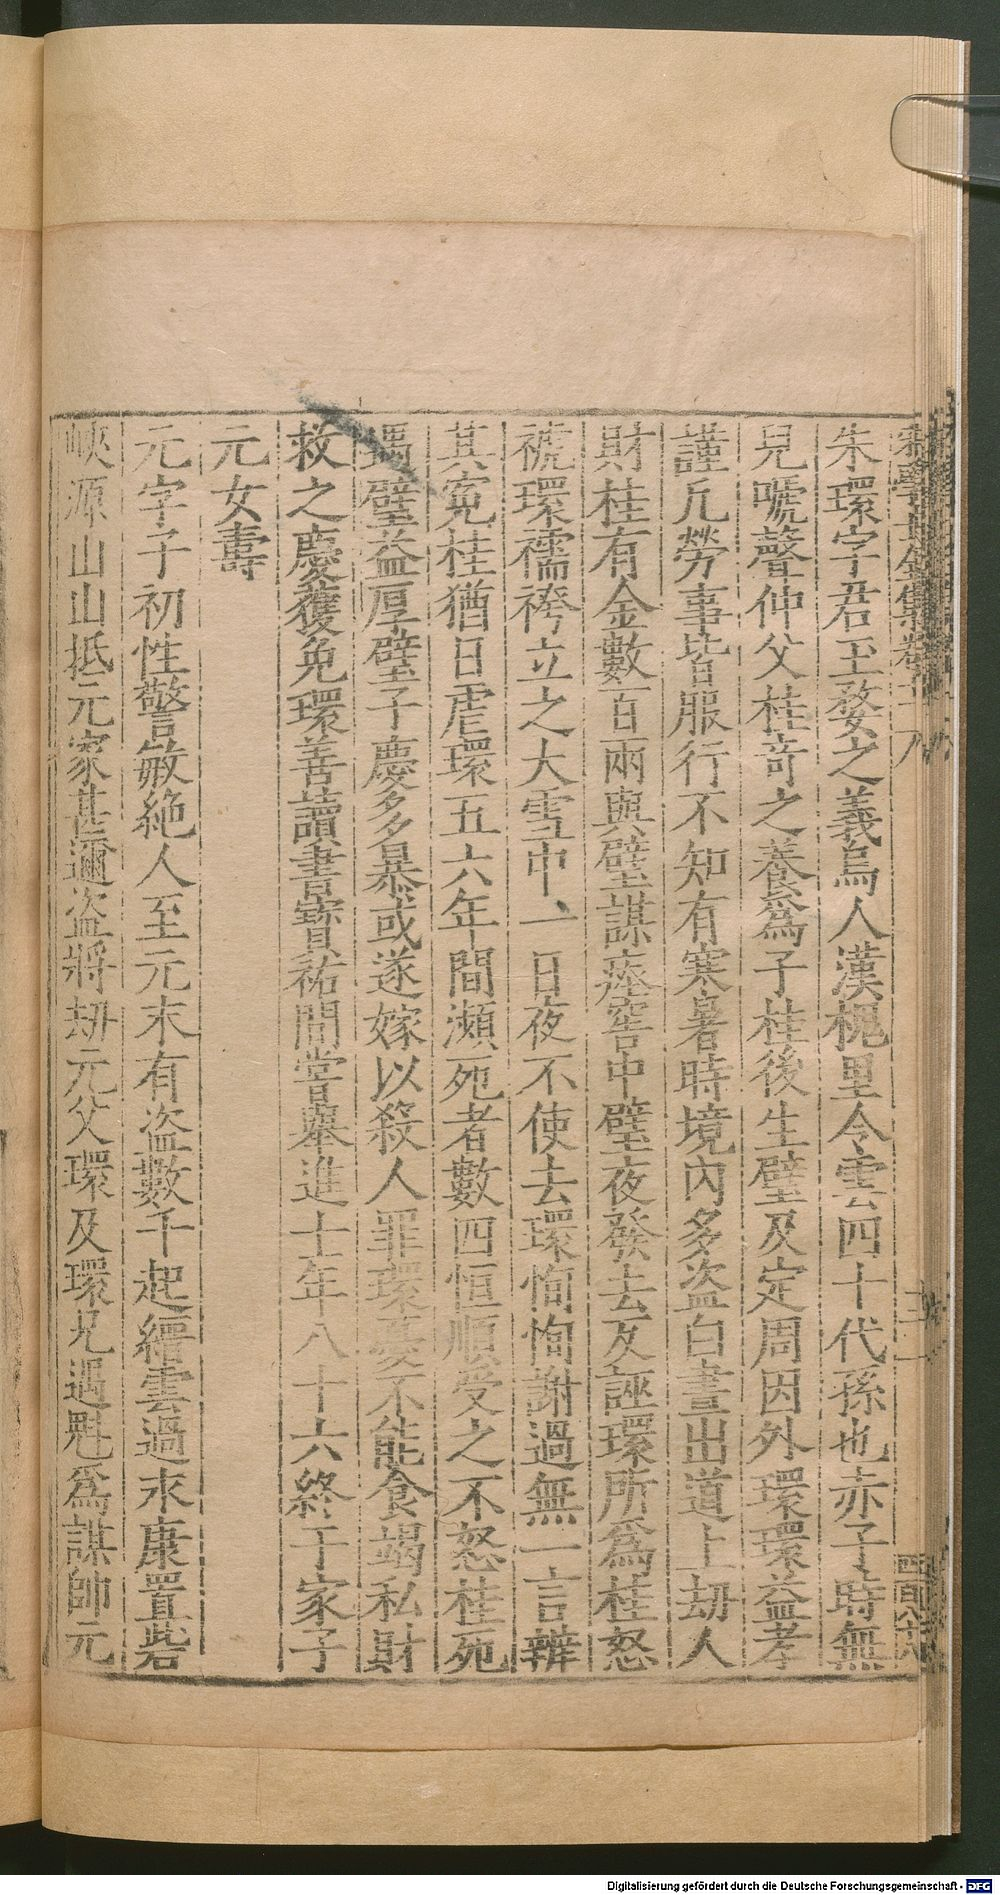 朱環字君玉婺之義烏人漢槐里令雲四十代孫也赤子時無
兒嗁聲仲父桂竒之養爲子桂後生璧及定周因外環環益孝
謹凡勞事皆服行不知有寒暑時境內多盜白晝出道上刼人
財桂有金數百兩與璧謀瘞窖中璧夜發去反誣環所爲桂怒
褫環襦袴立之大雪中一日夜不使去環恂恂謝過無一言辯
其寃桂猶日虐環五六年間瀕死者數四恒順受之不怒桂死
遇璧益厚璧子慶多暴或遂嫁以殺人罪環憂不能食竭私財
救之慶獲免環善讀書寳祐間嘗舉進士年八十六終于家子
元女壽
元字子初性警敏絶人至元末有盜數千起縉雲過永康置砦
峽源山山抵元家甚邇盜將刼元父環及環兄遇𩲃爲謀師元
四百六十六
Digitalisierung gefördert durch die Deutsche Forschungsgemeinschaft - DFG